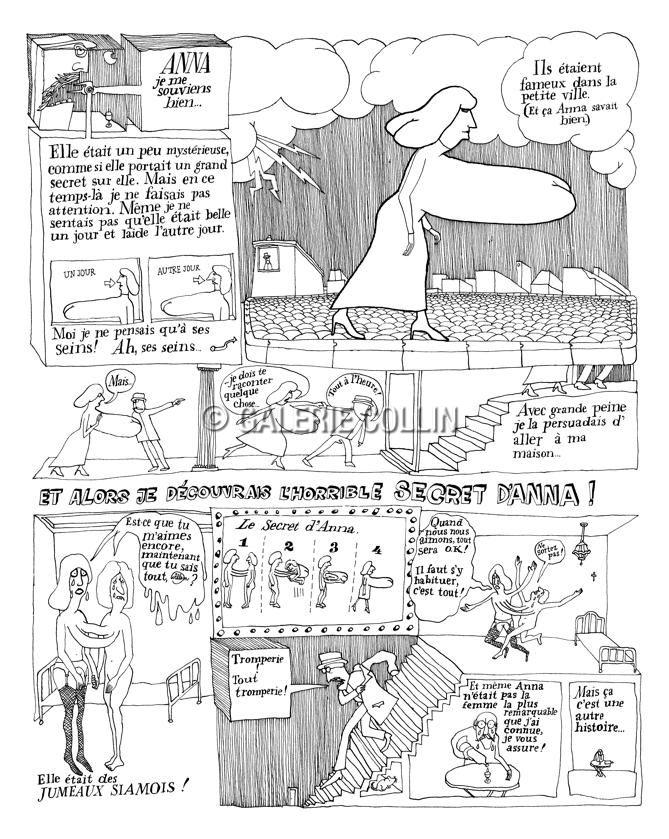 ANNA
je me
souviens
bien...
Ils étaient
fameux dans la
petite ville.
(Et ça Anna savait
bien.)
Elle était un peu mystérieuse,
comme si elle portait un grand
secret sur elle. Mais en ce
temps-là je ne faisais pas
attention. Même je ne
sentais pas qu'elle était belle
un jour et laide l'autre jour.
UN JOUR
AUTRE JOUR
Moi je ne pensais qu'à ses
seins! Ah, ses seins...
Mais...
-je dois te
raconter
quelque
chose...
Tout à l'heure!
Avec grande peine
je la persuadais d'
aller à ma
maison...
© GALERIE COLLIN
ET ALORS JE DÉCOUVRAIS L'HORRIBLE SECRET D'ANNA!
Est-ce que tu
m'aimes
encore,
maintenant
que tu sais
tout,
?
Le Secret d'Anna.
1 2 3 4
Quand
nous nous
aimons, tout
sera O.K!
Il faut s'y
habituer,
c'est tout!
Ne
sortez
pas!
Elle était des
JUMEAUX SIAMOIS!
Tromperie
!
Tout
tromperie!
Et même Anna
n'était pas la
femme la plus
remarquable
que j'ai
connue,
je vous
assure!
Mais ça
c'est une
autre
histoire...